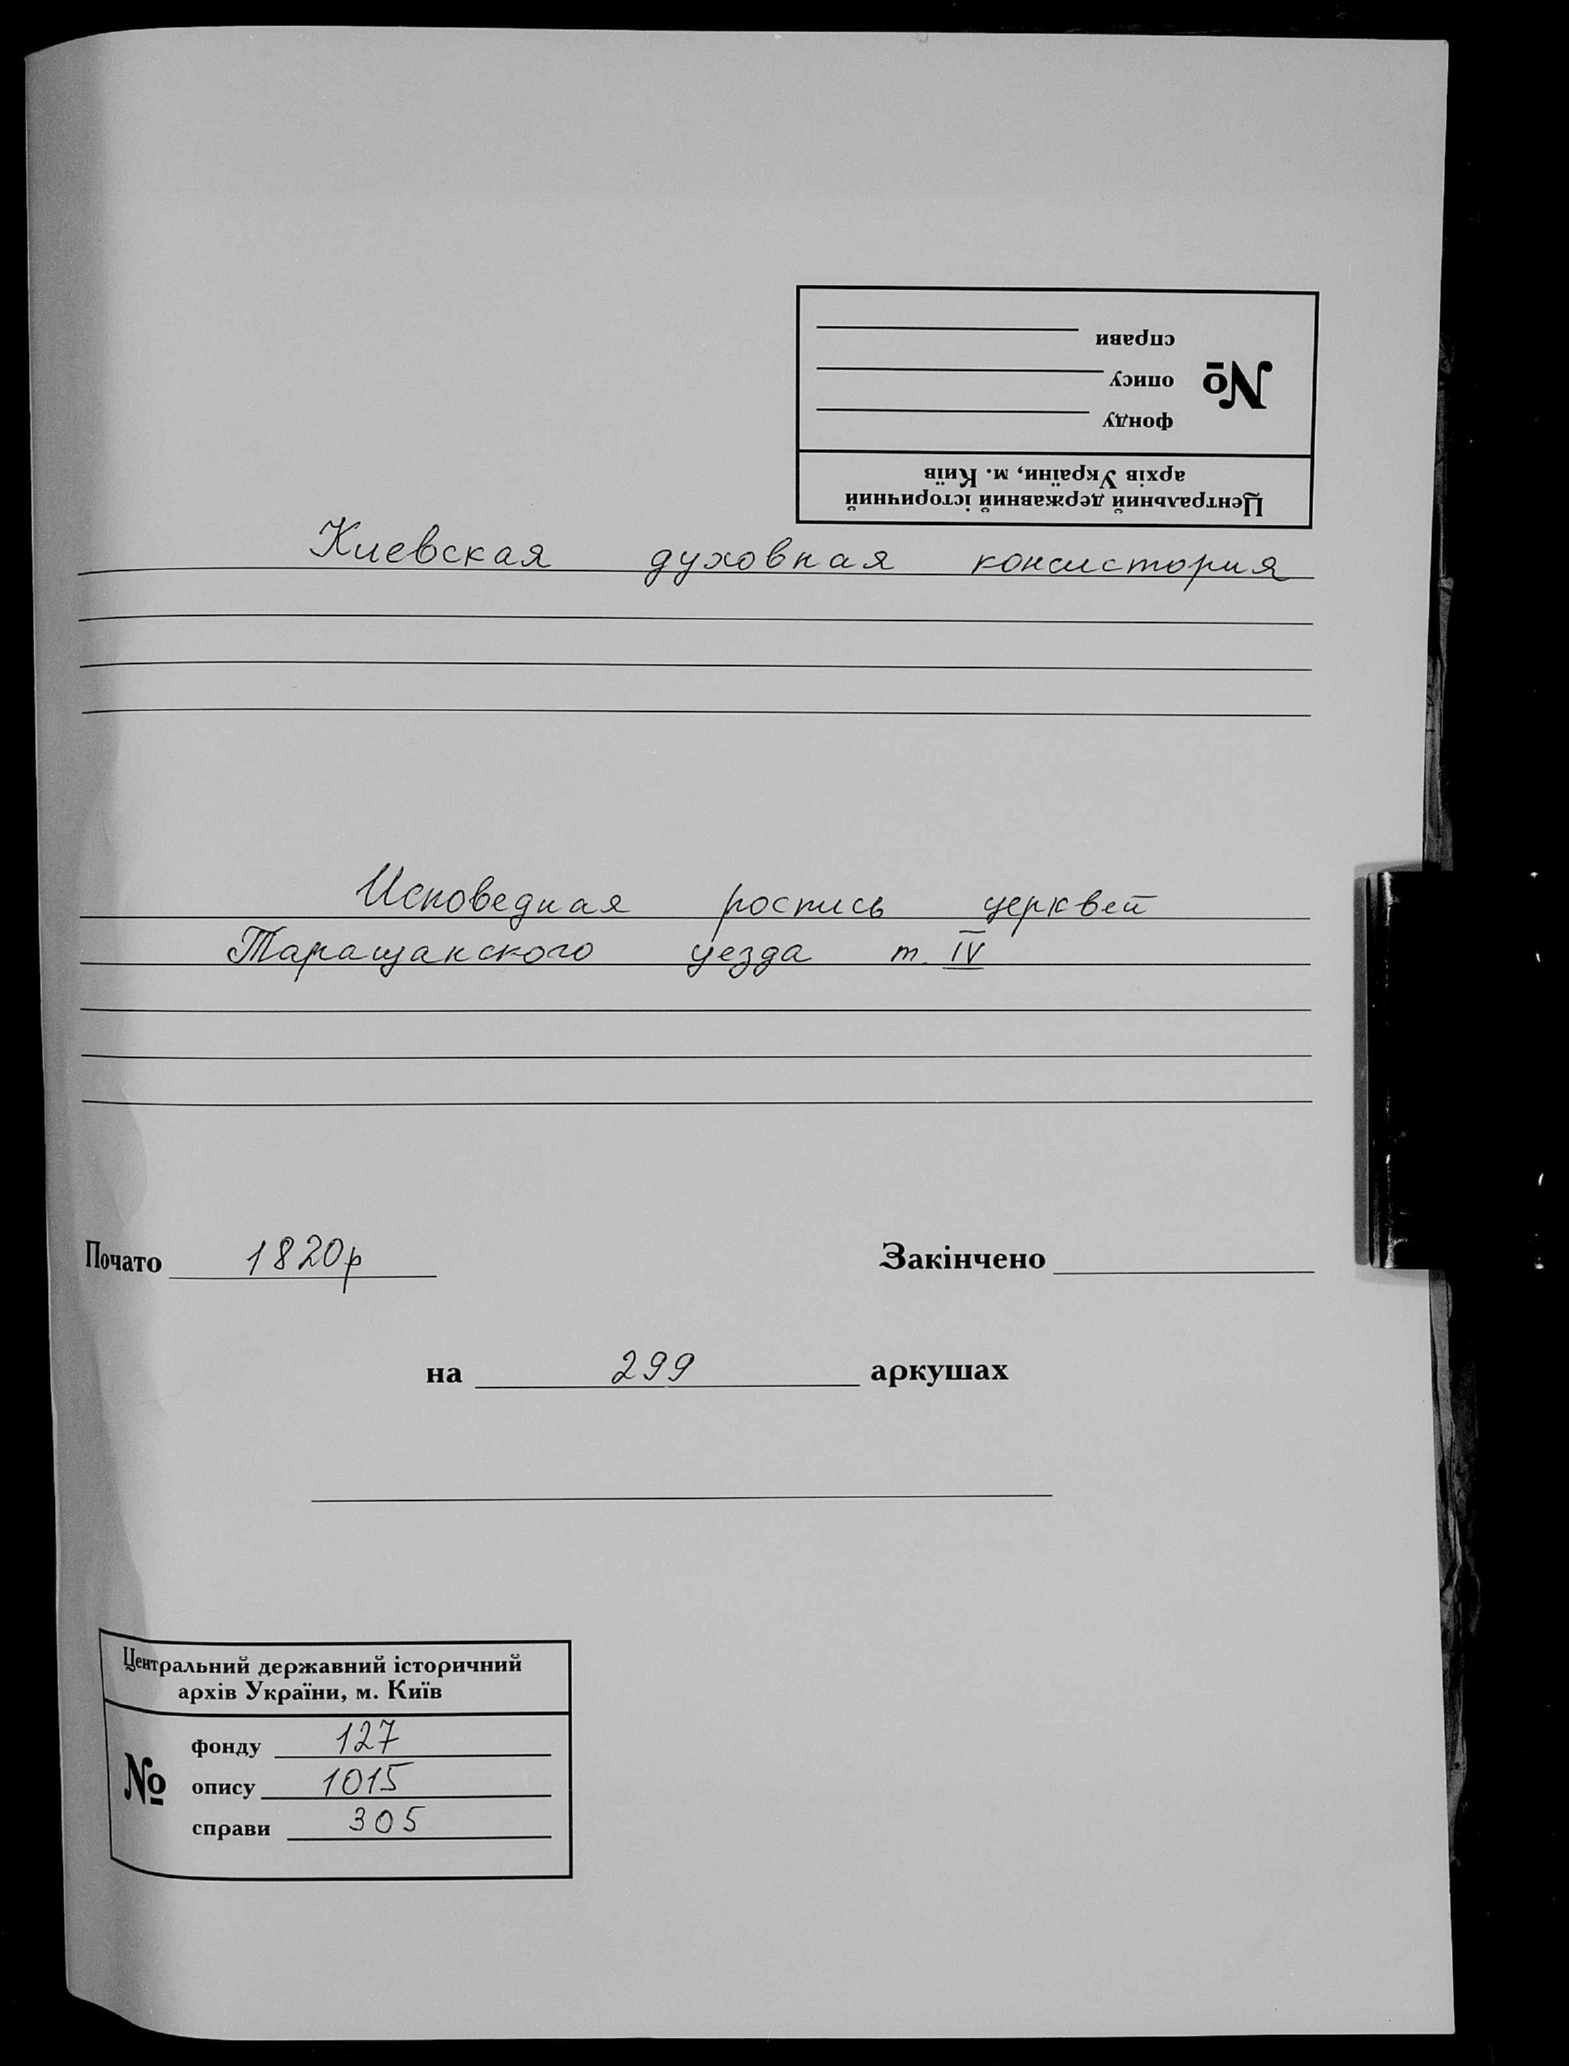 Центральний державний історичний
архів України, м. Київ
№
фонду
опису
справи
Киевская духовная консистория
Исповедная роспись церквей
Таращанского уезда т. IV
Почато 1820р Закінчено
на 299 аркушах
Центральний державний історичний
архів України, м. Київ
№
фонду 127
опису 1015
справи 305